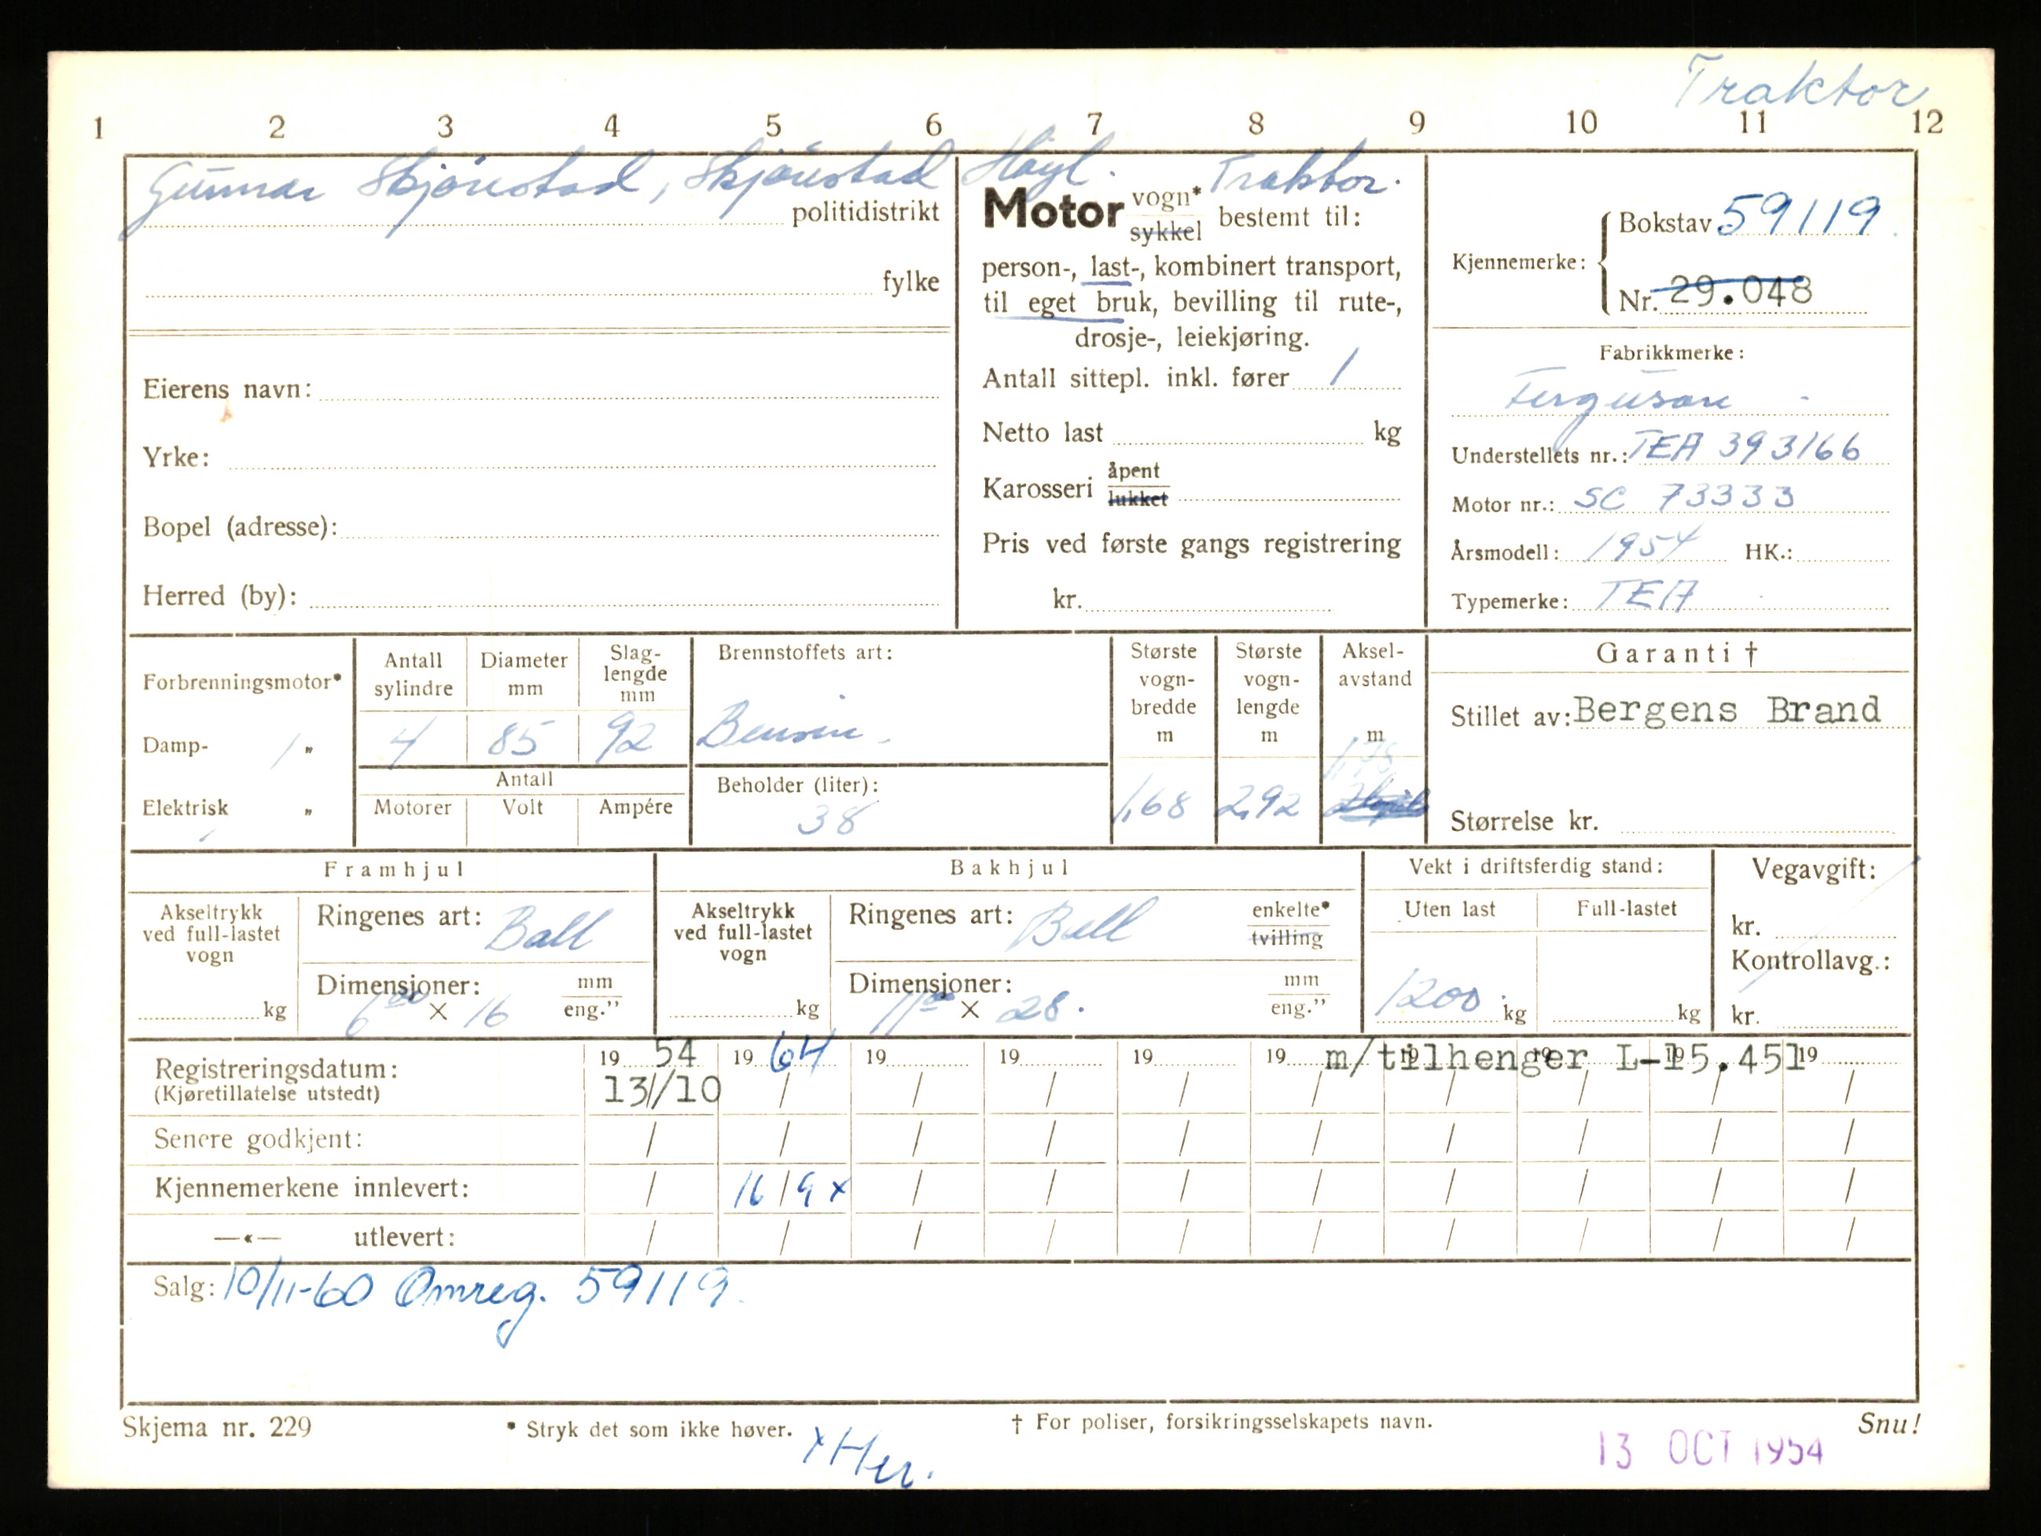 Traktor
1 2 3 4 5 6 7 8 9 10 11 12
Gunnar Skjörestad, Skjörestad Høyl. Traktor.
politidistrikt
fylke
Eierens navn:
Yrke:
Bopel (adresse):
Herred (by):
Motor vogn* sykkel bestemt til:
person-, last-, kombinert transport,
til eget bruk, bevilling til rute-,
drosje-, leiekjøring.
Antall sittepl. inkl. fører 1
Netto last kg
Karosseri åpent lukket
Pris ved første gangs registrering
kr.
Kjennemerke: Bokstav 59119
Nr. 29.048
Fabrikkmerke:
Ferguson
Understellets nr.: TEA 393166
Motor nr.: SC 73333
Årsmodell: 1954 HK.:
Typemerke: TEA
Forbrenningsmotor*
Damp- "
Elektrisk "
Antall sylindre Diameter mm Slag-lengde mm
4 85 92
Antall
Motorer Volt Ampére
Brennstoffets art:
Bensin
Beholder (liter):
38
Største vogn-bredde m
1,68
Største vogn-lengde m
2,92
Aksel-avstand m
1,78
Garanti †
Stillet av: Bergens Brand
Størrelse kr.
Framhjul
Akseltrykk ved full-lastet vogn
kg
Ringenes art: Ball
Dimensjoner: mm eng."
6.00 × 16
Bakhjul
Akseltrykk ved full-lastet vogn
kg
Ringenes art: Ball enkelte* tvilling
Dimensjoner: mm eng."
11.00 × 28.
Vekt i driftsferdig stand:
Uten last Full-lastet
1200 kg kg
Vegavgift:
kr.
Kontrollavg.:
kr.
Registreringsdatum: 19 54 19 64 19 19 19 19 19 19 19 19
m/tilhenger L-15.451
(Kjøretillatelse utstedt) 13/10 / / / / / / / / /
Senere godkjent: / / / / / / / / / /
Kjennemerkene innlevert: / 16/9 x / / / / / / / /
—«— utlevert: / / / / / / / / / /
Salg: 10/11-60 Omreg. 59119.
Skjema nr. 229 * Stryk det som ikke høver. † For poliser, forsikringsselskapets navn. Snu!
x Her.
13 OCT 1954